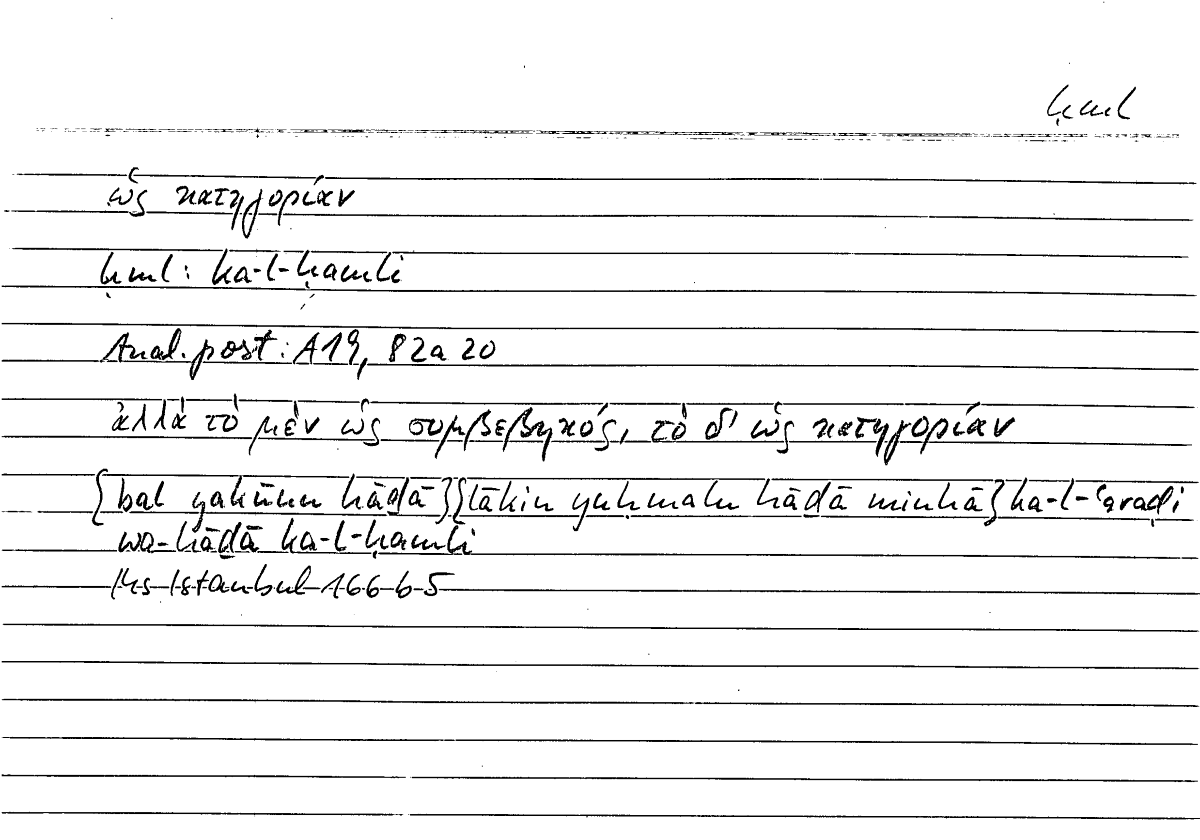 ḥml
ὡς κατηγορίαν
ḥml: ka-l-ḥamli
Anal. post: A19, 82a 20
ἀλλὰ τὸ μὲν ὡς συμβεβηκός, τὸ δ' ὡς κατηγορίαν
{bal yakūnu hāḏā}{lākin yuḥmalu hāḏā minhā} ka-l-ʿaraḍi
wa-hāḏā ka-l-ḥamli
Hs Istanbul 166 b 5